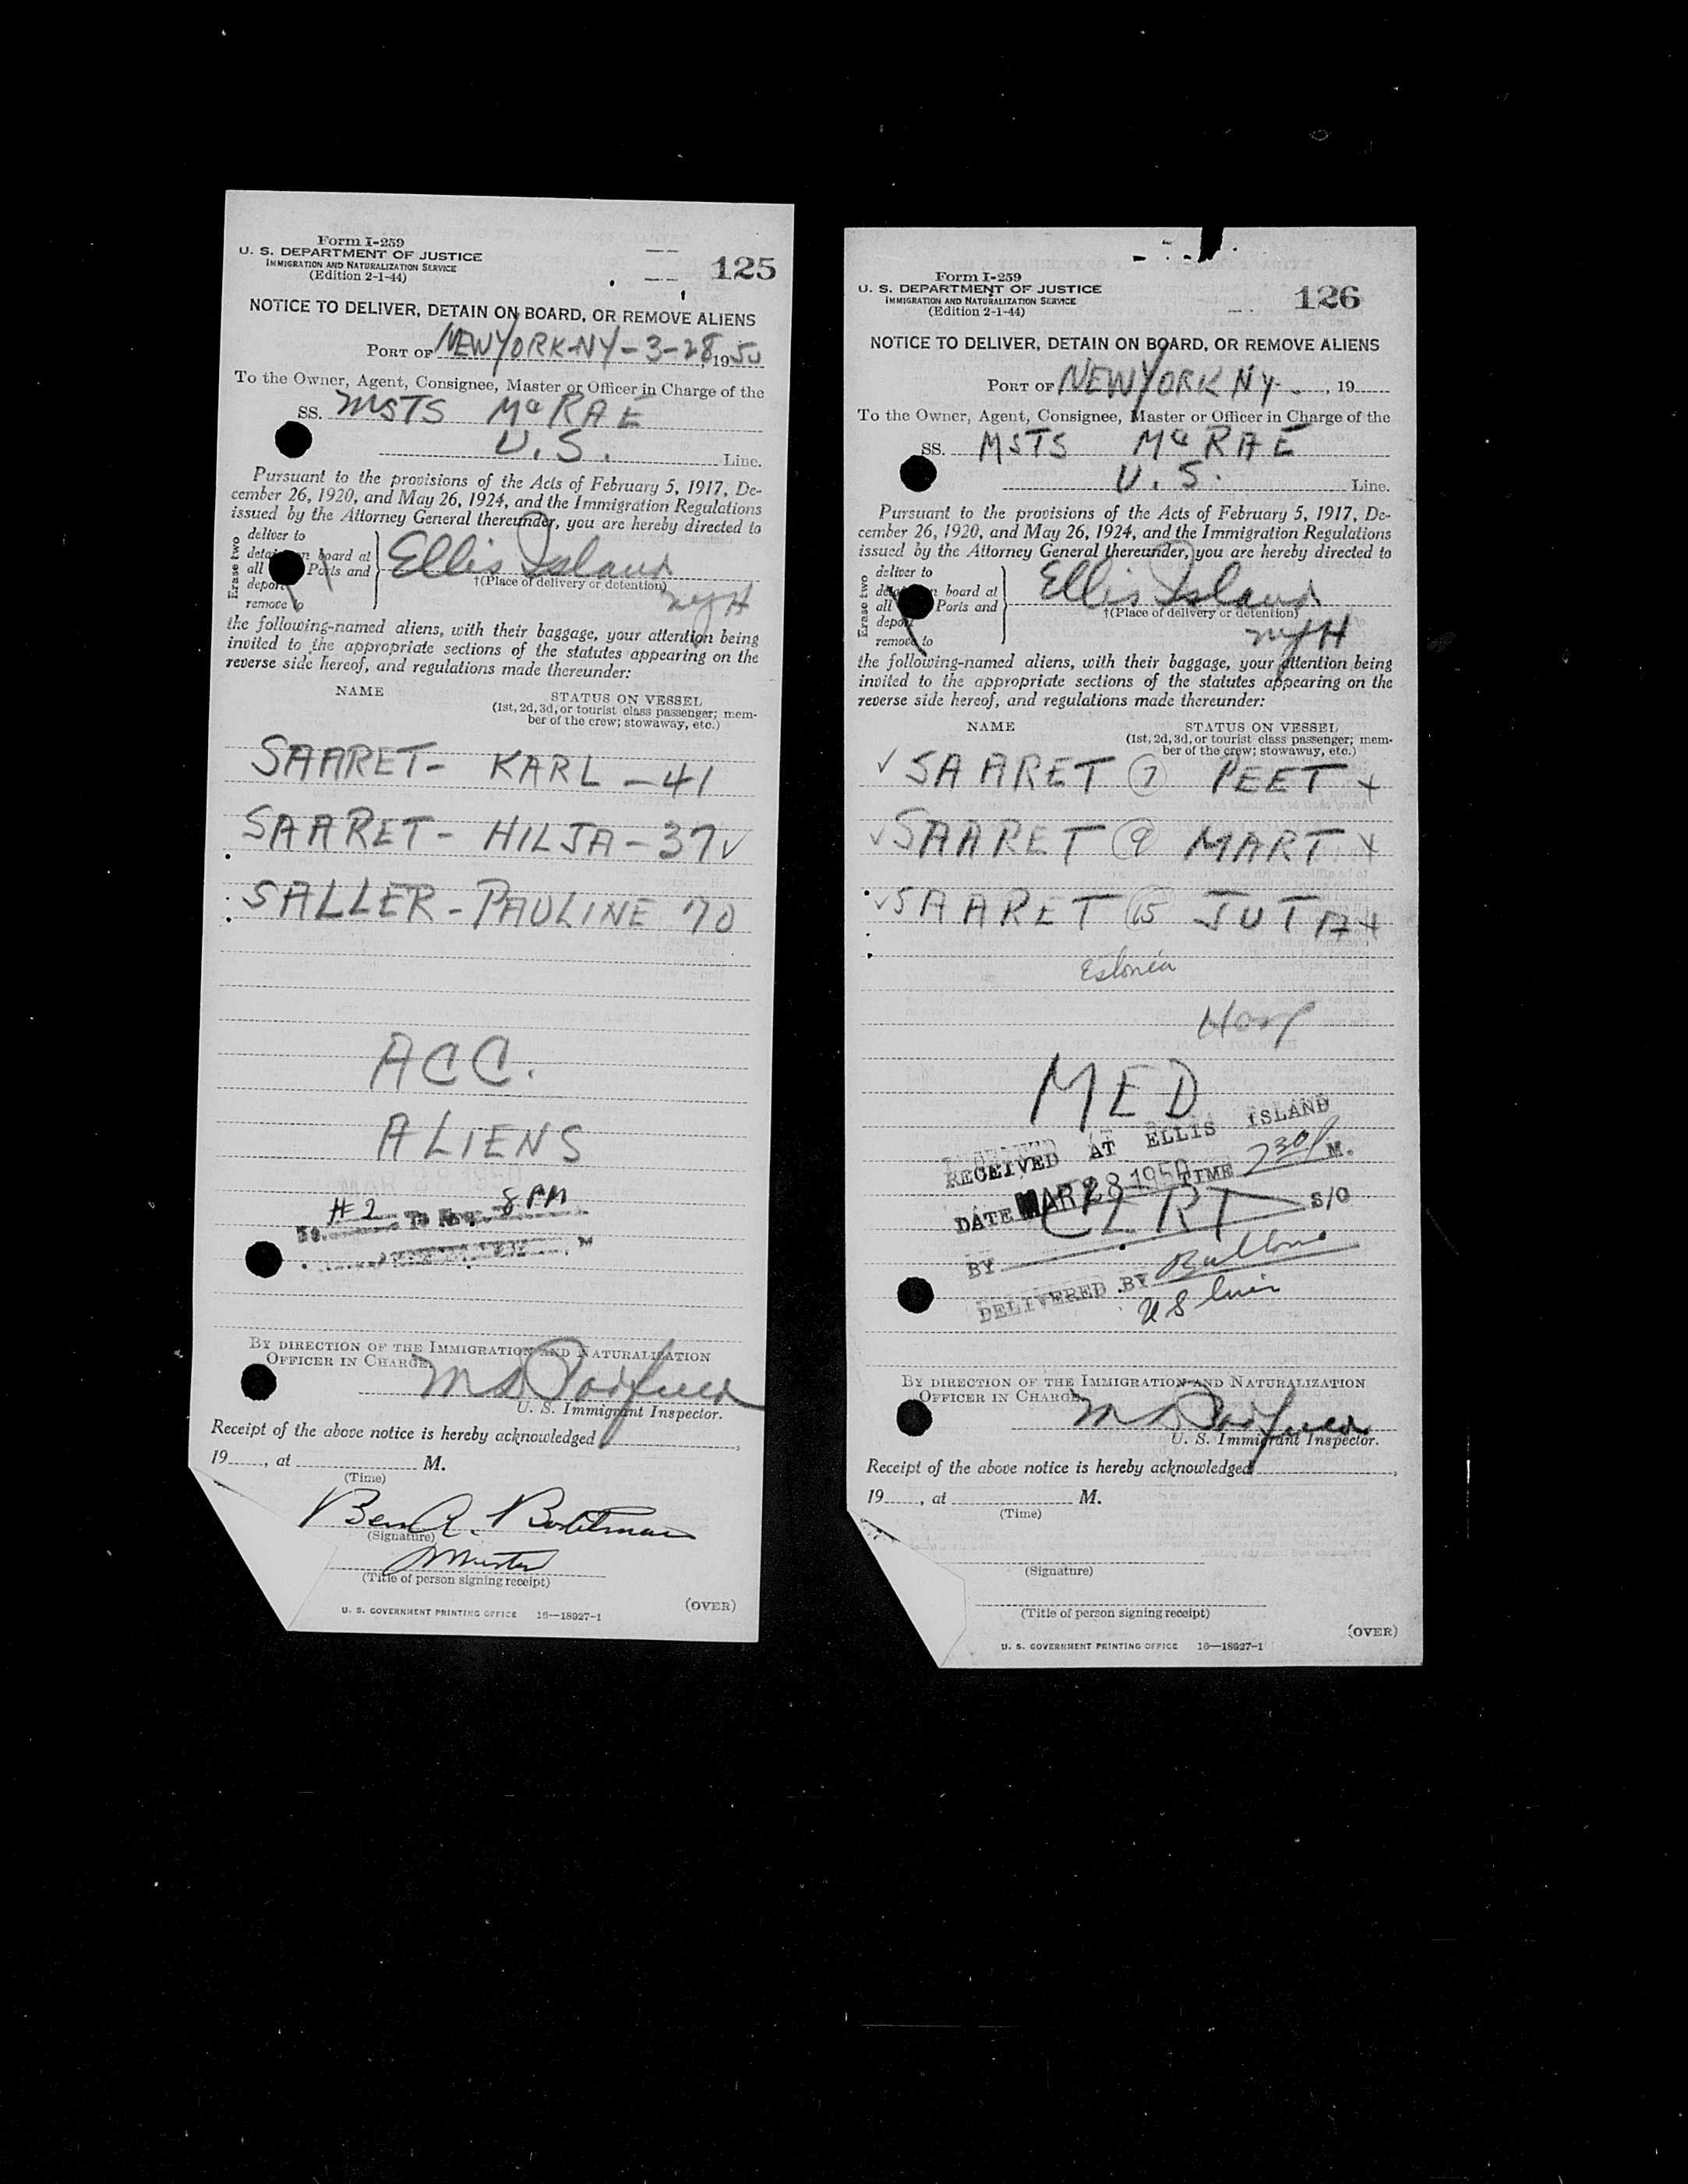 Form I-259
U. S. DEPARTMENT OF JUSTICE
IMMIGRATION AND NATURALIZATION SERVICE
(Edition 2-1-44)
125
NOTICE TO DELIVER, DETAIN ON BOARD, OR REMOVE ALIENS
PORT OF NEW YORK-NY-3-28, 1950
To the Owner, Agent, Consignee, Master or Officer in Charge of the
SS. MSTS McRAE
U.S. Line.
Pursuant to the provisions of the Acts of February 5, 1917, De-
cember 26, 1920, and May 26, 1924, and the Immigration Regulations
issued by the Attorney General thereunder, you are hereby directed to
Erase two
deliver to
board at
all Ports and
deport
remove to
Ellis Island
†(Place of delivery or detention)
NYH
the following-named aliens, with their baggage, your attention being
invited to the appropriate sections of the statutes appearing on the
reverse side hereof, and regulations made thereunder:
NAME
STATUS ON VESSEL
(1st, 2d, 3d, or tourist class passenger; mem-
ber of the crew; stowaway, etc.)
SAARET- KARL -41
SAARET- HILJA-37 ✓
SALLER-PAULINE 70
ACC.
ALIENS
#2 8 PM
BY DIRECTION OF THE IMMIGRATION AND NATURALIZATION
OFFICER IN CHARGE
U. S. Immigrant Inspector.
Receipt of the above notice is hereby acknowledged ,
19 , at M.
(Time)
Ben A.
(Signature)
Master
(Title of person signing receipt)
(OVER)
U. S. GOVERNMENT PRINTING OFFICE 16—18927-1
Form I-259
U. S. DEPARTMENT OF JUSTICE
IMMIGRATION AND NATURALIZATION SERVICE
(Edition 2-1-44)
126
NOTICE TO DELIVER, DETAIN ON BOARD, OR REMOVE ALIENS
PORT OF NEW YORK NY. , 19
To the Owner, Agent, Consignee, Master or Officer in Charge of the
SS. MSTS McRAE
U.S. Line.
Pursuant to the provisions of the Acts of February 5, 1917, De-
cember 26, 1920, and May 26, 1924, and the Immigration Regulations
issued by the Attorney General thereunder, you are hereby directed to
Erase two
deliver to
board at
all Ports and
deport
remove to
Ellis Island
†(Place of delivery or detention)
NYH
the following-named aliens, with their baggage, your attention being
invited to the appropriate sections of the statutes appearing on the
reverse side hereof, and regulations made thereunder:
NAME
STATUS ON VESSEL
(1st, 2d, 3d, or tourist class passenger; mem-
ber of the crew; stowaway, etc.)
✓ SAARET 7 PEET +
✓ SAARET 9 MART +
✓ SAARET JUTA +
Estonia
Hosp
MED
RECEIVED AT ELLIS ISLAND
DATE MAR 28 1950 TIME 230 P M.
CERT S/O
BY
DELIVERED BY
US Lines
BY DIRECTION OF THE IMMIGRATION AND NATURALIZATION
OFFICER IN CHARGE
U. S. Immigrant Inspector.
Receipt of the above notice is hereby acknowledged ,
19 , at M.
(Time)
(Signature)
(Title of person signing receipt)
(OVER)
U. S. GOVERNMENT PRINTING OFFICE 16—18927-1